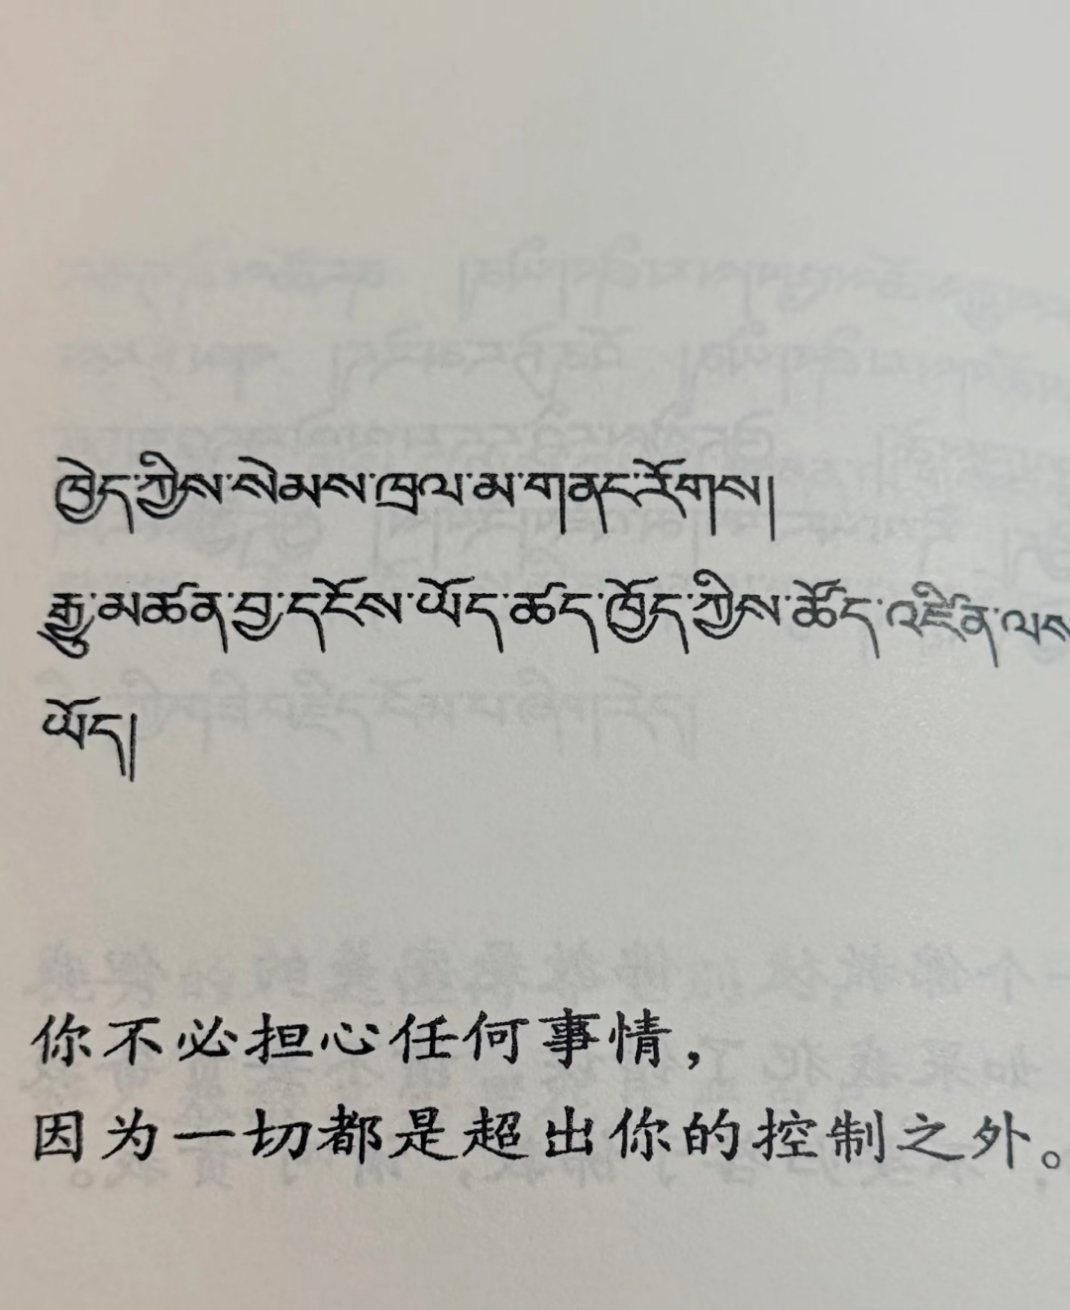 ཁྱེད་ཀྱིས་སེམས་ཁྲལ་མ་གནང་རོགས།
རྒྱུ་མཚན་བྱ་དངོས་ཡོད་ཚད་ཁྱོད་ཀྱིས་ཚོད་འཛིན་ལས
ཡོད།
你不必担心任何事情，
因为一切都是超出你的控制之外。